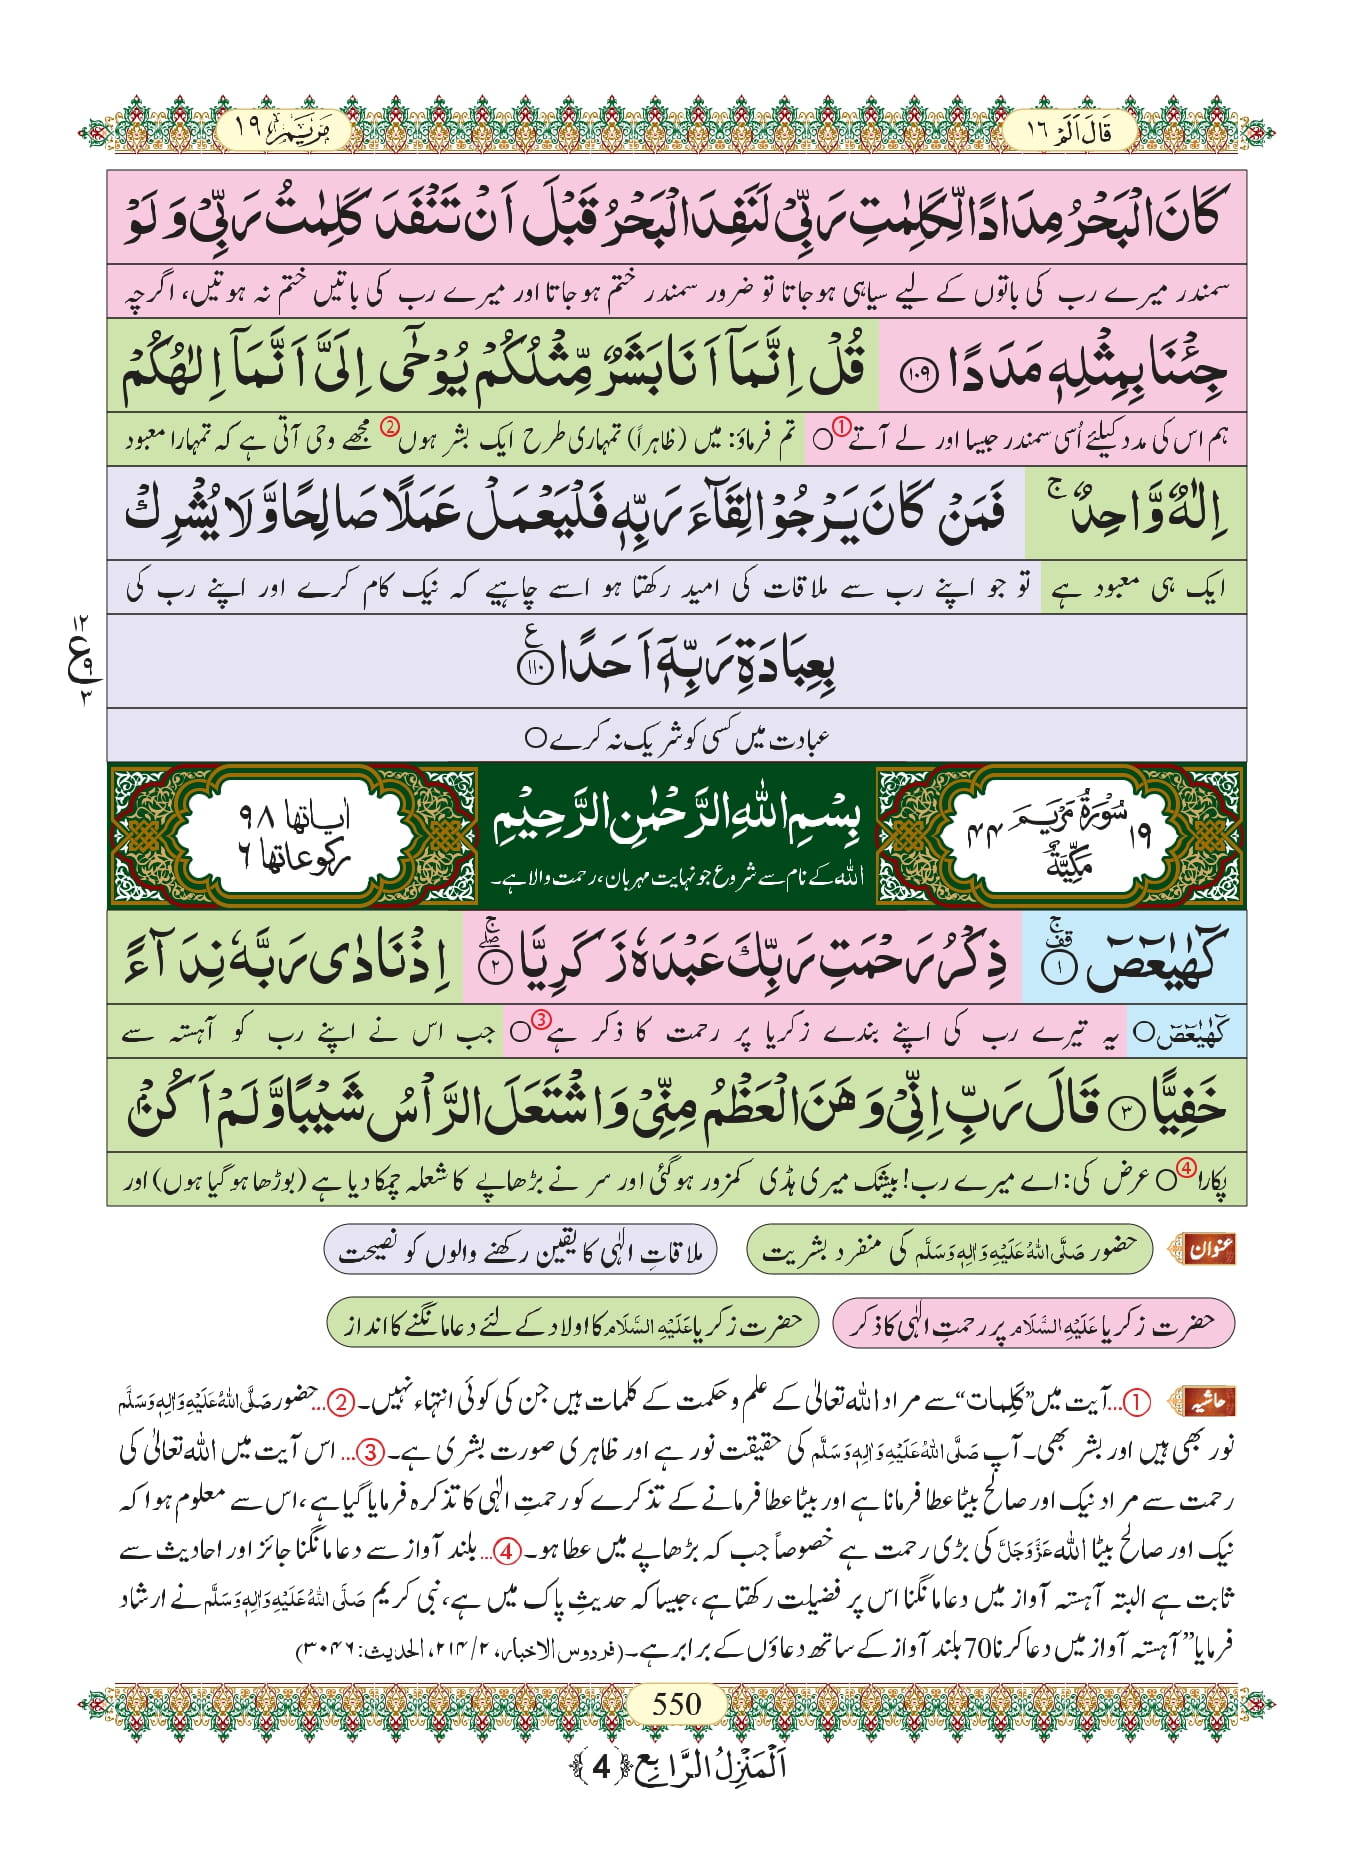 قَالَ اَلَمْ ١٦
مَرْيَم ١٩
كَانَ الْبَحْرُ مِدَادًا لِّكَلِمٰتِ رَبِّیْ لَنَفِدَ الْبَحْرُ قَبْلَ اَنْ تَنْفَدَ كَلِمٰتُ رَبِّیْ وَ لَوْ
سمندر میرے رب کی باتوں کے لیے سیاہی ہوجاتا تو ضرور سمندر ختم ہوجاتا اور میرے رب کی باتیں ختم نہ ہوتیں، اگرچہ
جِئْنَا بِمِثْلِهٖ مَدَدًا ﴿۱۰۹﴾ قُلْ اِنَّمَاۤ اَنَا بَشَرٌ مِّثْلُكُمْ یُوْحٰۤى اِلَیَّ اَنَّمَاۤ اِلٰهُكُمْ
ہم اس کی مدد کیلئے اُسی سمندر جیسا اور لے آتے① ○ تم فرماؤ: میں (ظاہراً) تمہاری طرح ایک بشر ہوں② مجھے وحی آتی ہے کہ تمہارا معبود
اِلٰهٌ وَّاحِدٌۚ فَمَنْ كَانَ یَرْجُوْا لِقَآءَ رَبِّهٖ فَلْیَعْمَلْ عَمَلًا صَالِحًا وَّ لَا یُشْرِكْ
ایک ہی معبود ہے تو جو اپنے رب سے ملاقات کی امید رکھتا ہو اسے چاہیے کہ نیک کام کرے اور اپنے رب کی
بِعِبَادَةِ رَبِّهٖۤ اَحَدًا ﴿۱۱۰﴾ ع
۱۲
ع ۹
۳
عبادت میں کسی کو شریک نہ کرے ○
١٩ سُوْرَةُ مَرْيَمَ ٤٤
مَكِّيَّةٌ
بِسْمِ اللهِ الرَّحْمٰنِ الرَّحِیْمِ
اللہ کے نام سے شروع جو نہایت مہربان، رحمت والا ہے۔
اٰياتها ٩٨
ركوعاتها ٦
كٓهٰیٰعٓصٓ ﴿۱﴾ۚ قف ذِكْرُ رَحْمَتِ رَبِّكَ عَبْدَهٗ زَكَرِیَّا ﴿۲﴾ۖۚ اِذْ نَادٰى رَبَّهٗ نِدَآءً
كٓهٰیٰعٓصٓ ○ یہ تیرے رب کی اپنے بندے زکریا پر رحمت کا ذکر ہے③ ○ جب اس نے اپنے رب کو آہستہ سے
خَفِیًّا ﴿۳﴾ قَالَ رَبِّ اِنِّیْ وَهَنَ الْعَظْمُ مِنِّیْ وَ اشْتَعَلَ الرَّاْسُ شَیْبًا وَّ لَمْ اَكُنْۢ
پکارا④ ○ عرض کی: اے میرے رب! بیشک میری ہڈی کمزور ہوگئی اور سر نے بڑھاپے کا شعلہ چمکا دیا ہے (بوڑھا ہوگیا ہوں) اور
عنوان حضور صَلَّى اللهُ عَلَيْهِ وَاٰلِهٖ وَسَلَّم کی منفرد بشریت ملاقاتِ الٰہی کا یقین رکھنے والوں کو نصیحت
حضرت زکریا عَلَيْهِ السَّلَام پر رحمتِ الٰہی کا ذکر حضرت زکریا عَلَيْهِ السَّلَام کا اولاد کے لئے دعا مانگنے کا انداز
حاشیہ ①...آیت میں ”كَلِمات“ سے مراد اللہ تعالیٰ کے علم و حکمت کے کلمات ہیں جن کی کوئی انتہاء نہیں۔ ②...حضور صَلَّى اللهُ عَلَيْهِ وَاٰلِهٖ وَسَلَّم
نور بھی ہیں اور بشر بھی۔ آپ صَلَّى اللهُ عَلَيْهِ وَاٰلِهٖ وَسَلَّم کی حقیقت نور ہے اور ظاہری صورت بشری ہے۔ ③... اس آیت میں اللہ تعالیٰ کی
رحمت سے مراد نیک اور صالح بیٹا عطا فرمانا ہے اور بیٹا عطا فرمانے کے تذکرے کو رحمتِ الٰہی کا تذکرہ فرمایا گیا ہے، اس سے معلوم ہوا کہ
نیک اور صالح بیٹا اللہ عَزَّوَجَلَّ کی بڑی رحمت ہے خصوصاً جب کہ بڑھاپے میں عطا ہو۔ ④... بلند آواز سے دعا مانگنا جائز اور احادیث سے
ثابت ہے البتہ آہستہ آواز میں دعا مانگنا اس پر فضیلت رکھتا ہے، جیسا کہ حدیثِ پاک میں ہے، نبی کریم صَلَّى اللهُ عَلَيْهِ وَاٰلِهٖ وَسَلَّم نے ارشاد
فرمایا ”آہستہ آواز میں دعا کرنا 70 بلند آواز کے ساتھ دعاؤں کے برابر ہے۔ (فردوس الاخبار، ۲/۲۱۴، الحدیث: ۳۰۴۶)
550
اَلْمَنْزِلُ الرَّابِع ﴿4﴾